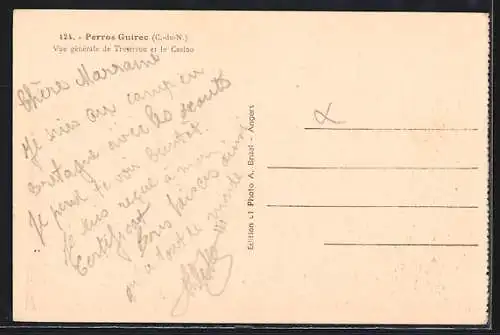 124. - Perros Guirec (C.-du-N.)
Vue générale de Trestrou et le Casino
Chère Marraine
Je suis au camp en
Bretagne avec les scouts
Je pense te voir bientôt.
Je suis reçue à mon
Certificat
Bons baisers ainsi
qu'à tout le monde !!!
Edition et Photo A. Bruel - Angers